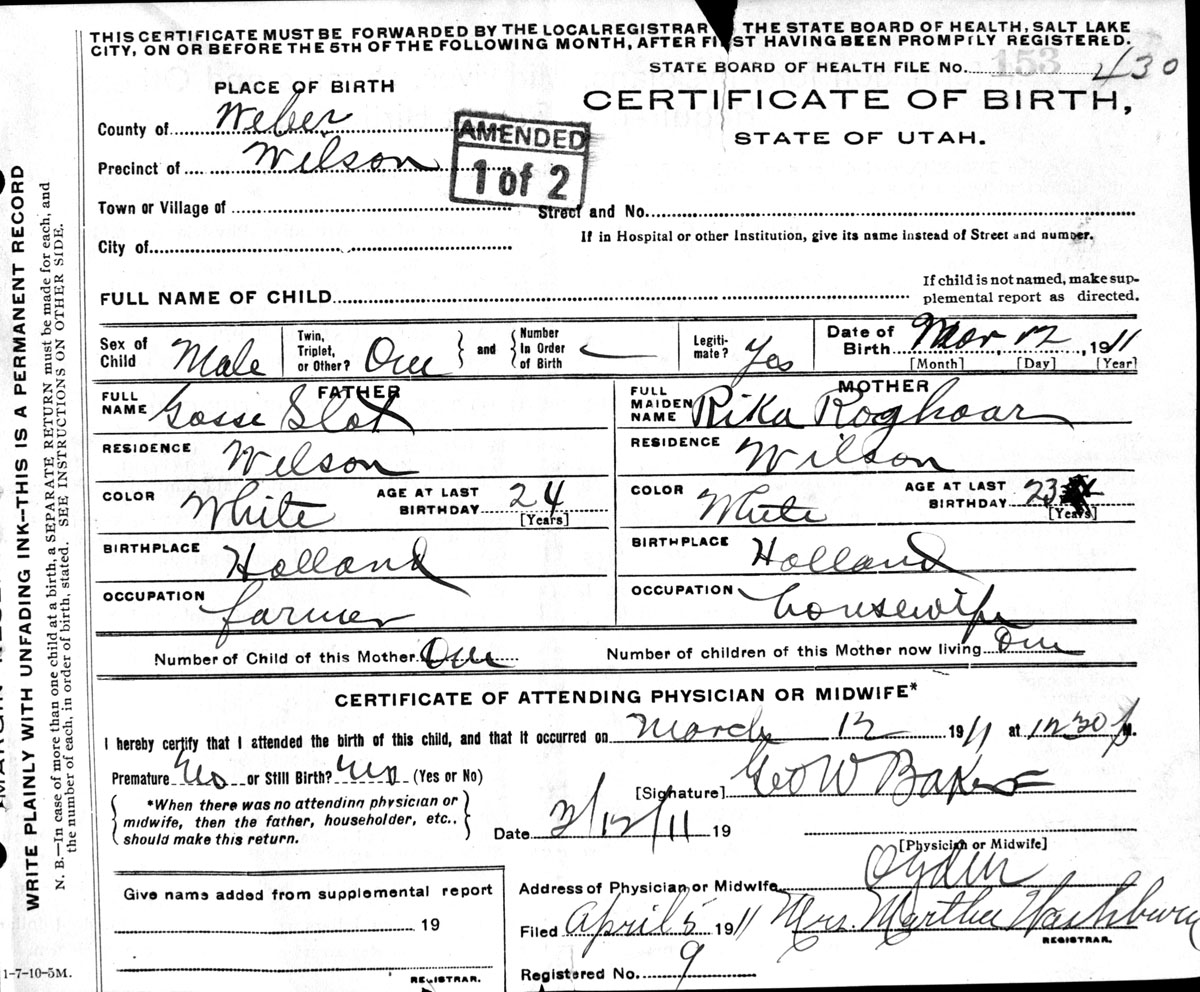 THIS CERTIFICATE MUST BE FORWARDED BY THE LOCAL REGISTRAR THE STATE BOARD OF HEALTH, SALT LAKE
CITY, ON OR BEFORE THE 5TH OF THE FOLLOWING MONTH, AFTER FIRST HAVING BEEN PROMPTLY REGISTERED.
STATE BOARD OF HEALTH FILE No. 153 430
PLACE OF BIRTH
CERTIFICATE OF BIRTH,
STATE OF UTAH.
County of Weber
AMENDED
1 of 2
Precinct of Wilson
Town or Village of
Street and No.
City of
If in Hospital or other Institution, give its name instead of Street and number.
FULL NAME OF CHILD
If child is not named, make sup-
plemental report as directed.
Sex of Child Male
Twin, Triplet, or Other? One
and
Number In Order of Birth
Legiti-mate? Yes
Date of Birth Mar 12, 1911
[Month] [Day] [Year]
FATHER
FULL NAME Gosse Slot
MOTHER
FULL MAIDEN NAME Rika Roghoar
RESIDENCE Wilson
RESIDENCE Wilson
COLOR White AGE AT LAST BIRTHDAY 24
[Years]
COLOR White AGE AT LAST BIRTHDAY 23
[Years]
BIRTHPLACE Holland
BIRTHPLACE Holland
OCCUPATION farmer
OCCUPATION housewife
Number of Child of this Mother One
Number of children of this Mother now living One
CERTIFICATE OF ATTENDING PHYSICIAN OR MIDWIFE*
I hereby certify that I attended the birth of this child, and that it occurred on March 12 1911 at 12 30 P M.
Premature No or Still Birth? No (Yes or No)
[Signature] Geo W Baker
*When there was no attending physician or
midwife, then the father, householder, etc.,
should make this return.
Date 3/12/11 19
[Physician or Midwife]
Address of Physician or Midwife Ogden
Give name added from supplemental report
19
REGISTRAR.
Filed April 5 1911 Mrs. Martha Washburn
REGISTRAR.
Registered No. 9
1-7-10-5M.
WRITE PLAINLY WITH UNFADING INK—THIS IS A PERMANENT RECORD
N. B.—In case of more than one child at a birth, a SEPARATE RETURN must be made for each, and
the number of each, in order of birth, stated. SEE INSTRUCTIONS ON OTHER SIDE.